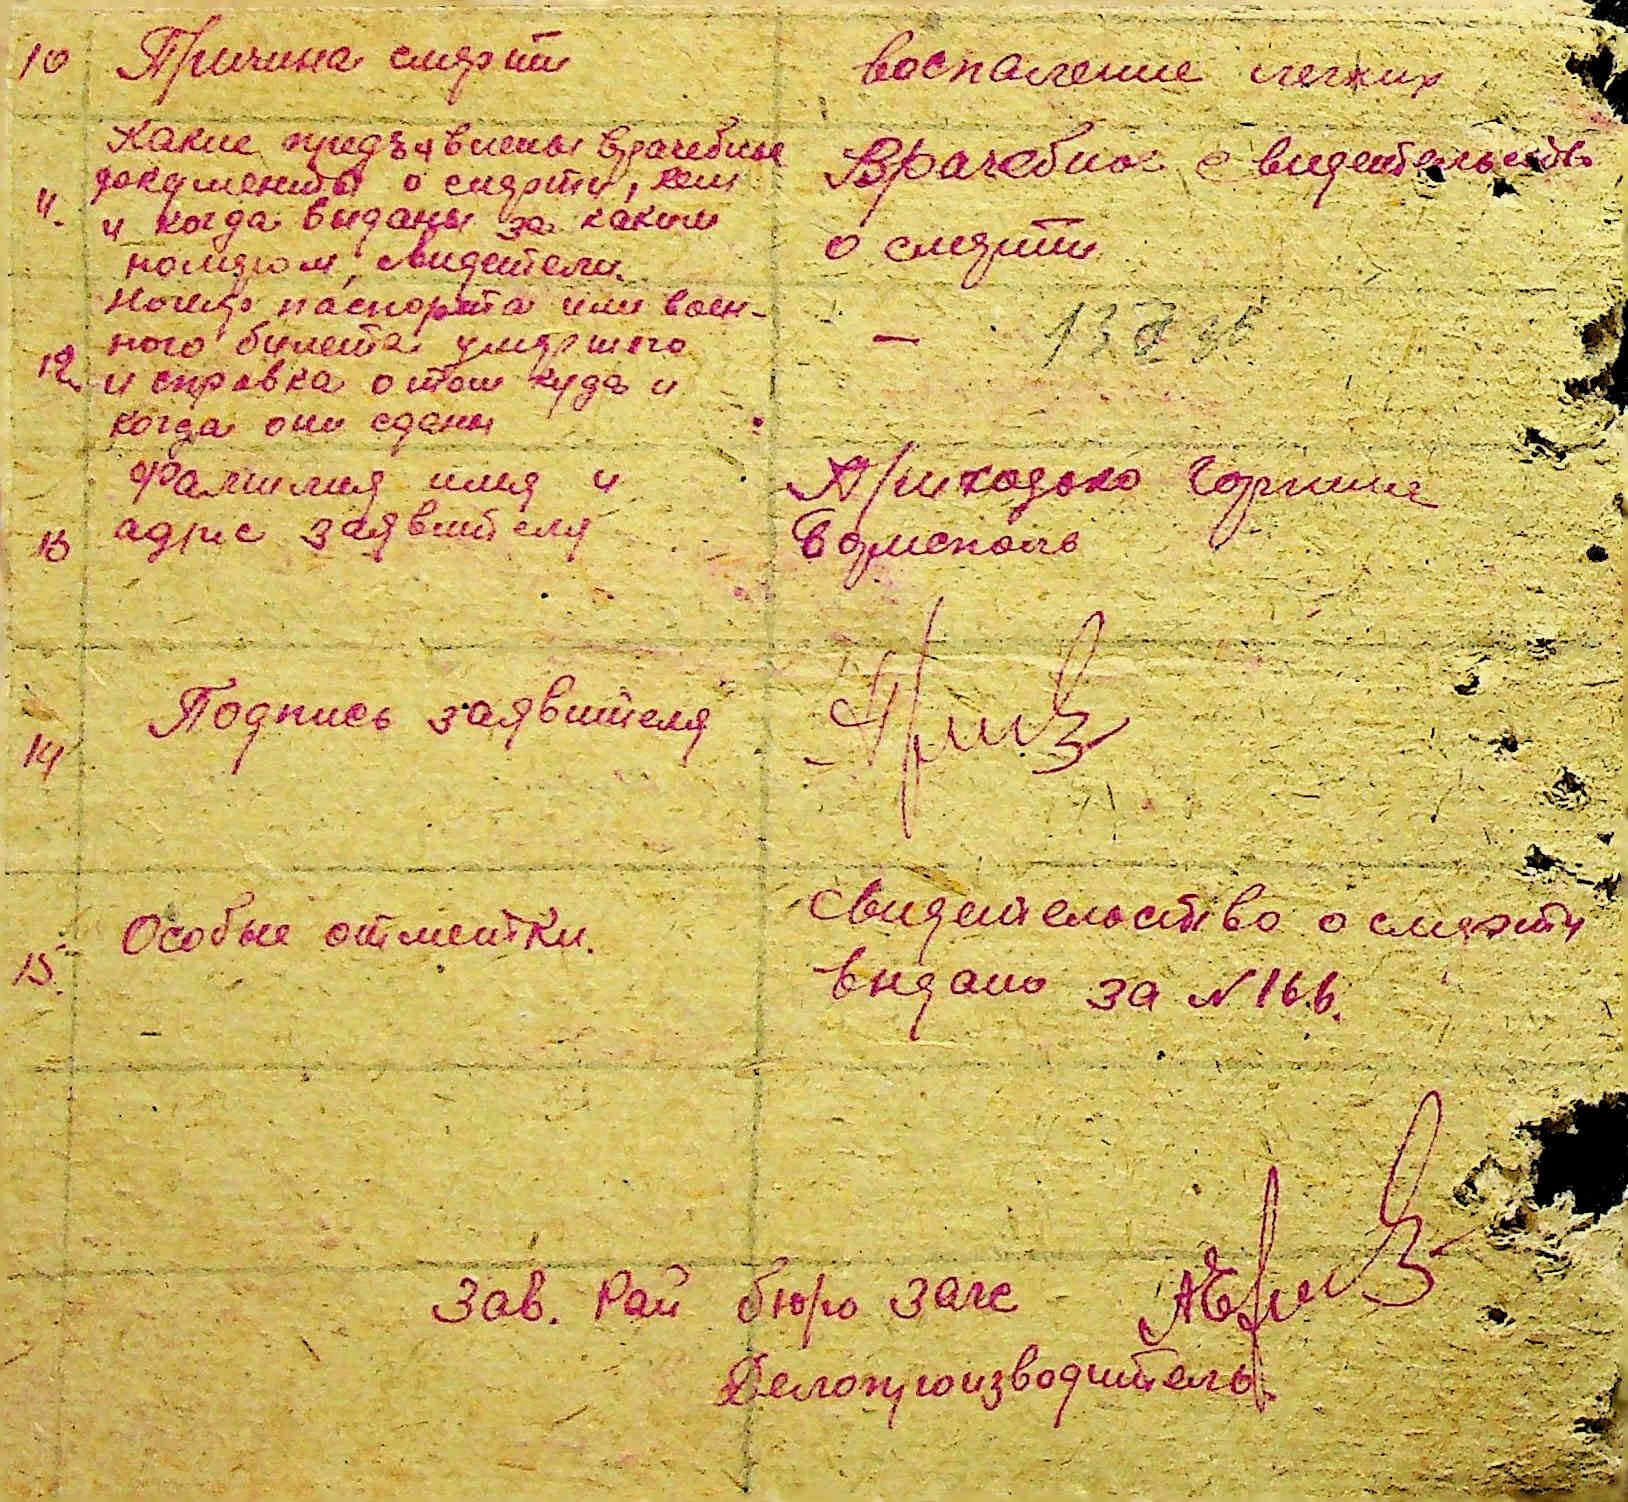 10 Причина смерти
воспаление легких
Какие предъявлены врачебные
документы о смерти, кем
11. и когда выданы за каким
номером, свидетели.
Врачебное свидетельство
о смерти
Номер паспорта или воен-
ного билета умершего
12. и справка о том куда и
когда они сданы
—
Фамилия имя и
13 адрес заявителя
Приходько
Борисполь
14 Подпись заявителя
15. Особые отметки.
Свидетельство о смерти
выдано за N 166.
Зав. Рай бюро загс
Делопроизводитель.